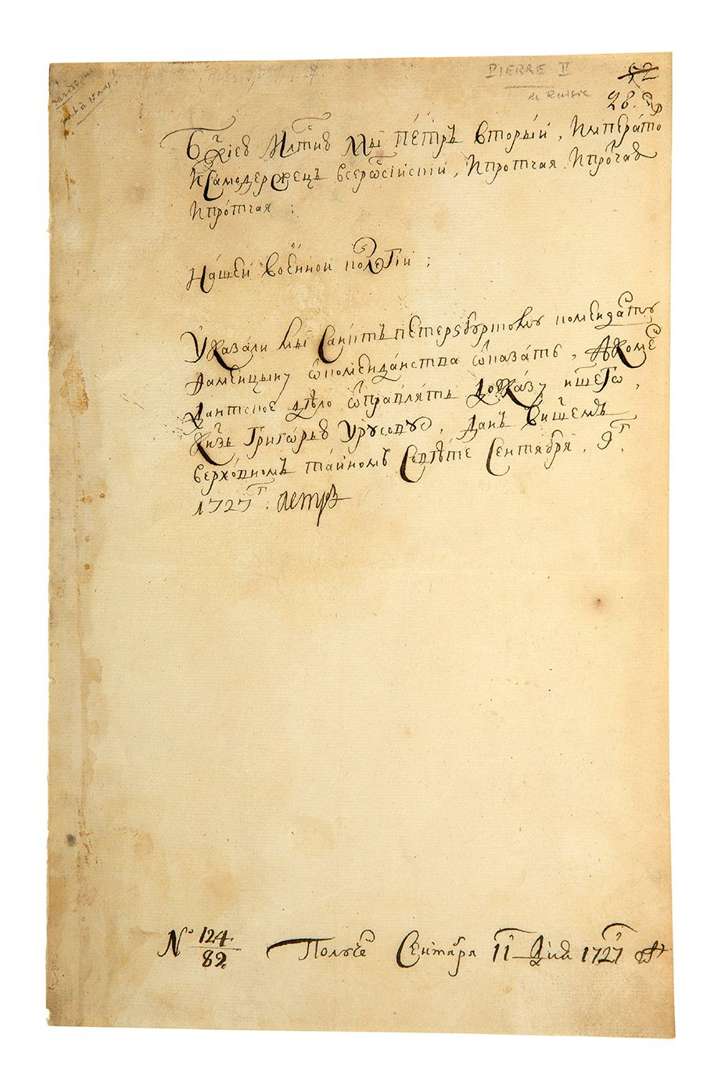 PIERRE II
de Russie
52
28.
Бжіею Млтию Мы ПЕТРЪ Вторыи, Императо
И Самодержецъ всеросиискии, Ипротчая. Ипротчая
Ипротчая :
Нашеи военнои колегии ;
Указали мы Санктъ петербургскому коменданту
Фаминцыну комендантства ѿказать, Акоме
дантское дѣло ѿправлять доуказу ншего,
Кнзь Григорью Урусову, Данъ Внашемъ
верховномъ таиномъ Совѣте Сентября, 9г,
1727г. Петръ
№ 124
82
Получе Сентября 11 Дня 1727